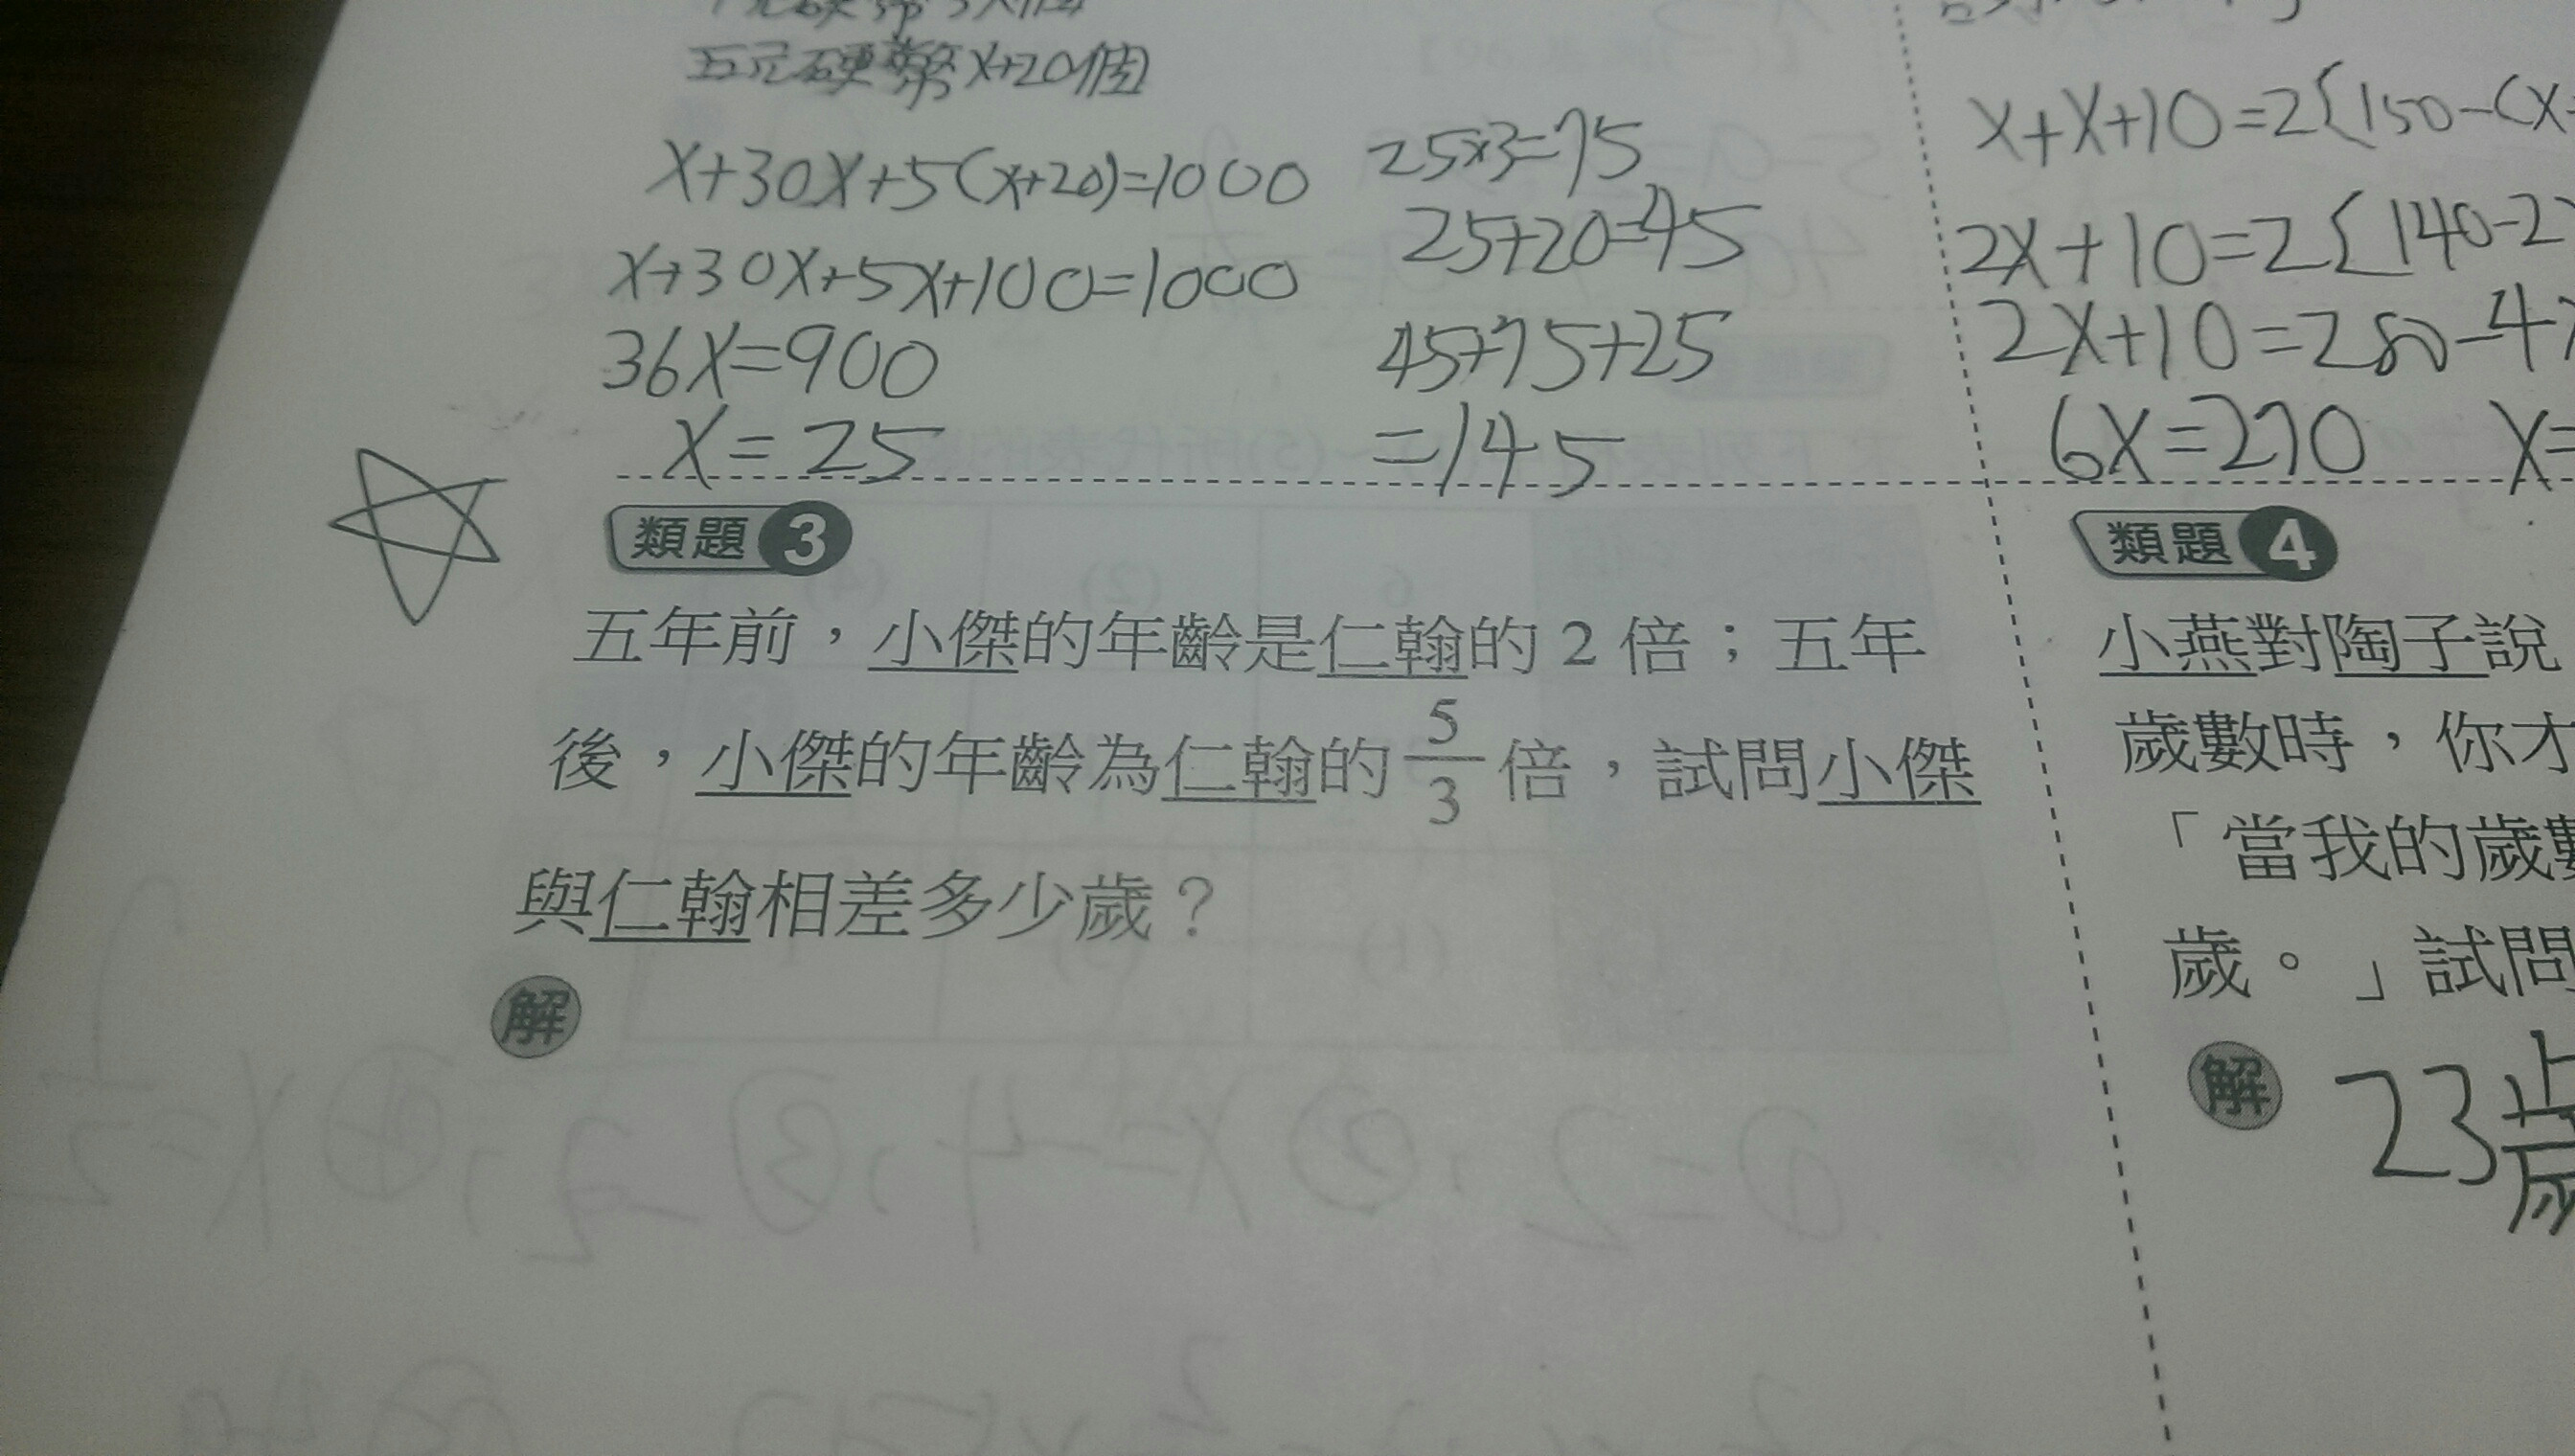 五元硬幣x+20個
x+30x+5(x+20)=1000
x+30x+5x+100=1000
36x=900
x=25
25×3=75
25+20=45
45+75+25
=145
x+x+10=2{150-(x
2x+10=2{140-2
2x+10=280-4
6x=270 x=
類題3
五年前，小傑的年齡是仁翰的2倍；五年
後，小傑的年齡為仁翰的5/3倍，試問小傑
與仁翰相差多少歲？
解
類題4
小燕對陶子說
歲數時，你才
「當我的歲數
歲。」試問
解 23歲